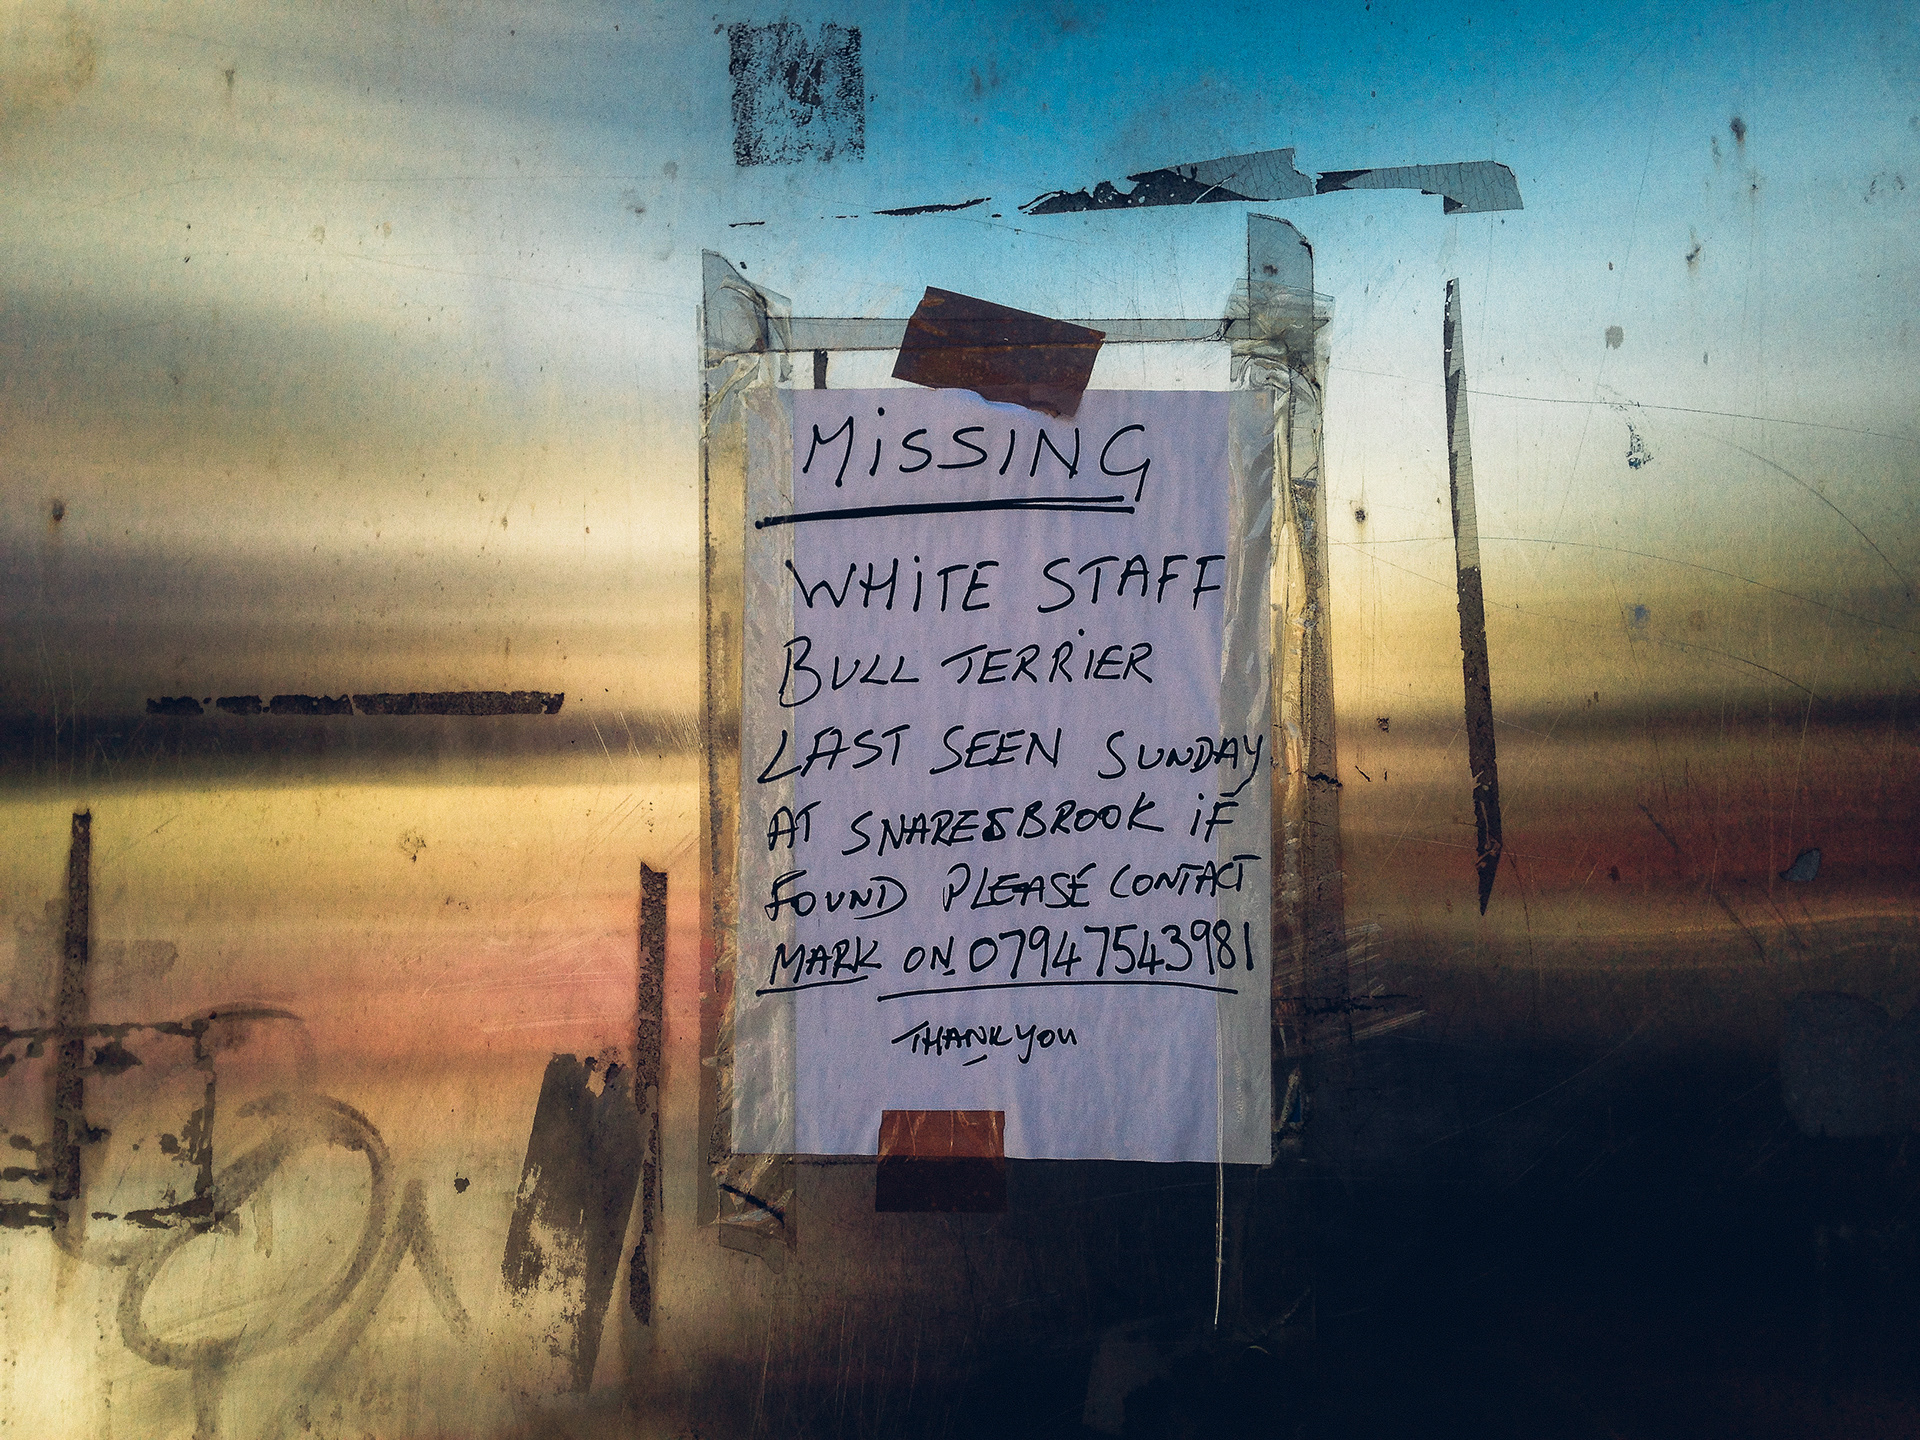 MiSSING
WHiTE STAFF
BULL TERRiER
LAST SEEN SUNDAY
AT SNARESBROOK iF
FOUND PLEASE CONTACT
MARK ON 07947543981
THANK YOU